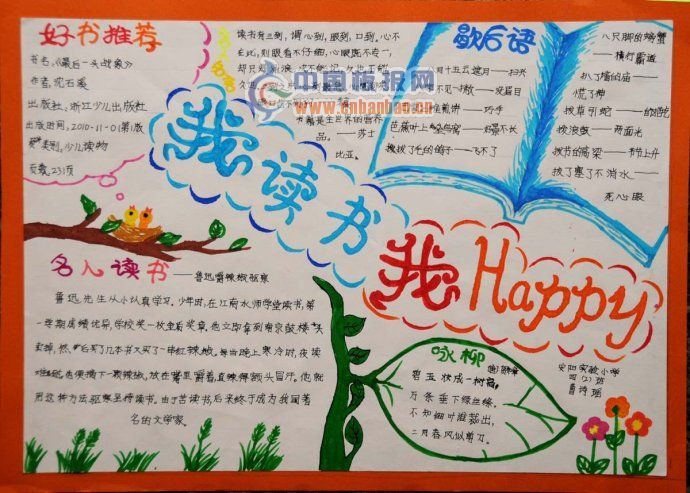 好书推荐
书名：《最后一头战象》
作者：沈石溪
出版社：浙江少儿出版社
出版时间：2010-11-01第1版
类别：少儿读物
页数：231页
名人名言
读书有三到，谓心到，眼到，口到。心不
在此，则眼看不仔细，心眼既不专一，
却只
中国板报网
www.cnbanbao.cn
书籍是全世界的营养
品。——莎士
比亚。
歇后语
八月十五云遮月——扫兴
不见
——发眉目
煎饼——巧手
芭蕉叶上
——好景不长
拔了毛的鸽子——飞不了
八只脚的螃蟹
——横行霸道
扒了墙的庙——
慌了神
拔草引蛇——
拔浪鼓——两面光
拔节的高粱——节节上升
拔了塞了不淌水——
死心眼
我读书
我Happy
名人读书——鲁迅嚼辣椒驱寒
鲁迅先生从小认真学习。少年时，在江南水师学堂读书，第
一学期成绩优异，学校奖一枚金质奖章，他立即拿到南京鼓楼街头
卖掉，然后买了几本书又买了一串红辣椒。每当晚上寒冷时，夜读
难耐，他便摘下一颗辣椒，放在嘴里嚼着，直辣得额头冒汗。他就
用这种方法驱寒坚持读书。由于苦读书后来终于成为我国著
名的文学家。
咏柳
碧玉妆成一树高，
万条垂下绿丝绦。
不知细叶谁裁出，
二月春风似剪刀。
安阳实验小学
四（2）班
曹诗瑶